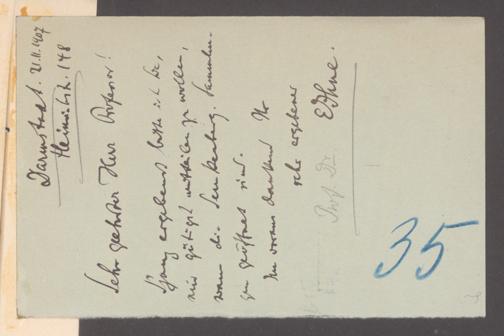 Darmstadt. 21.11.1907
Heinrichstr. 148
Sehr geehrter Herr Professor!
Ganz ergebenst bitte ich Sie,
mir gütigst mitteilen zu wollen,
wann die Senckenberg. Sammlun-
gen geöffnet sind.
Im voraus dankend Ihr
sehr ergebener
Prof. Dr.
35